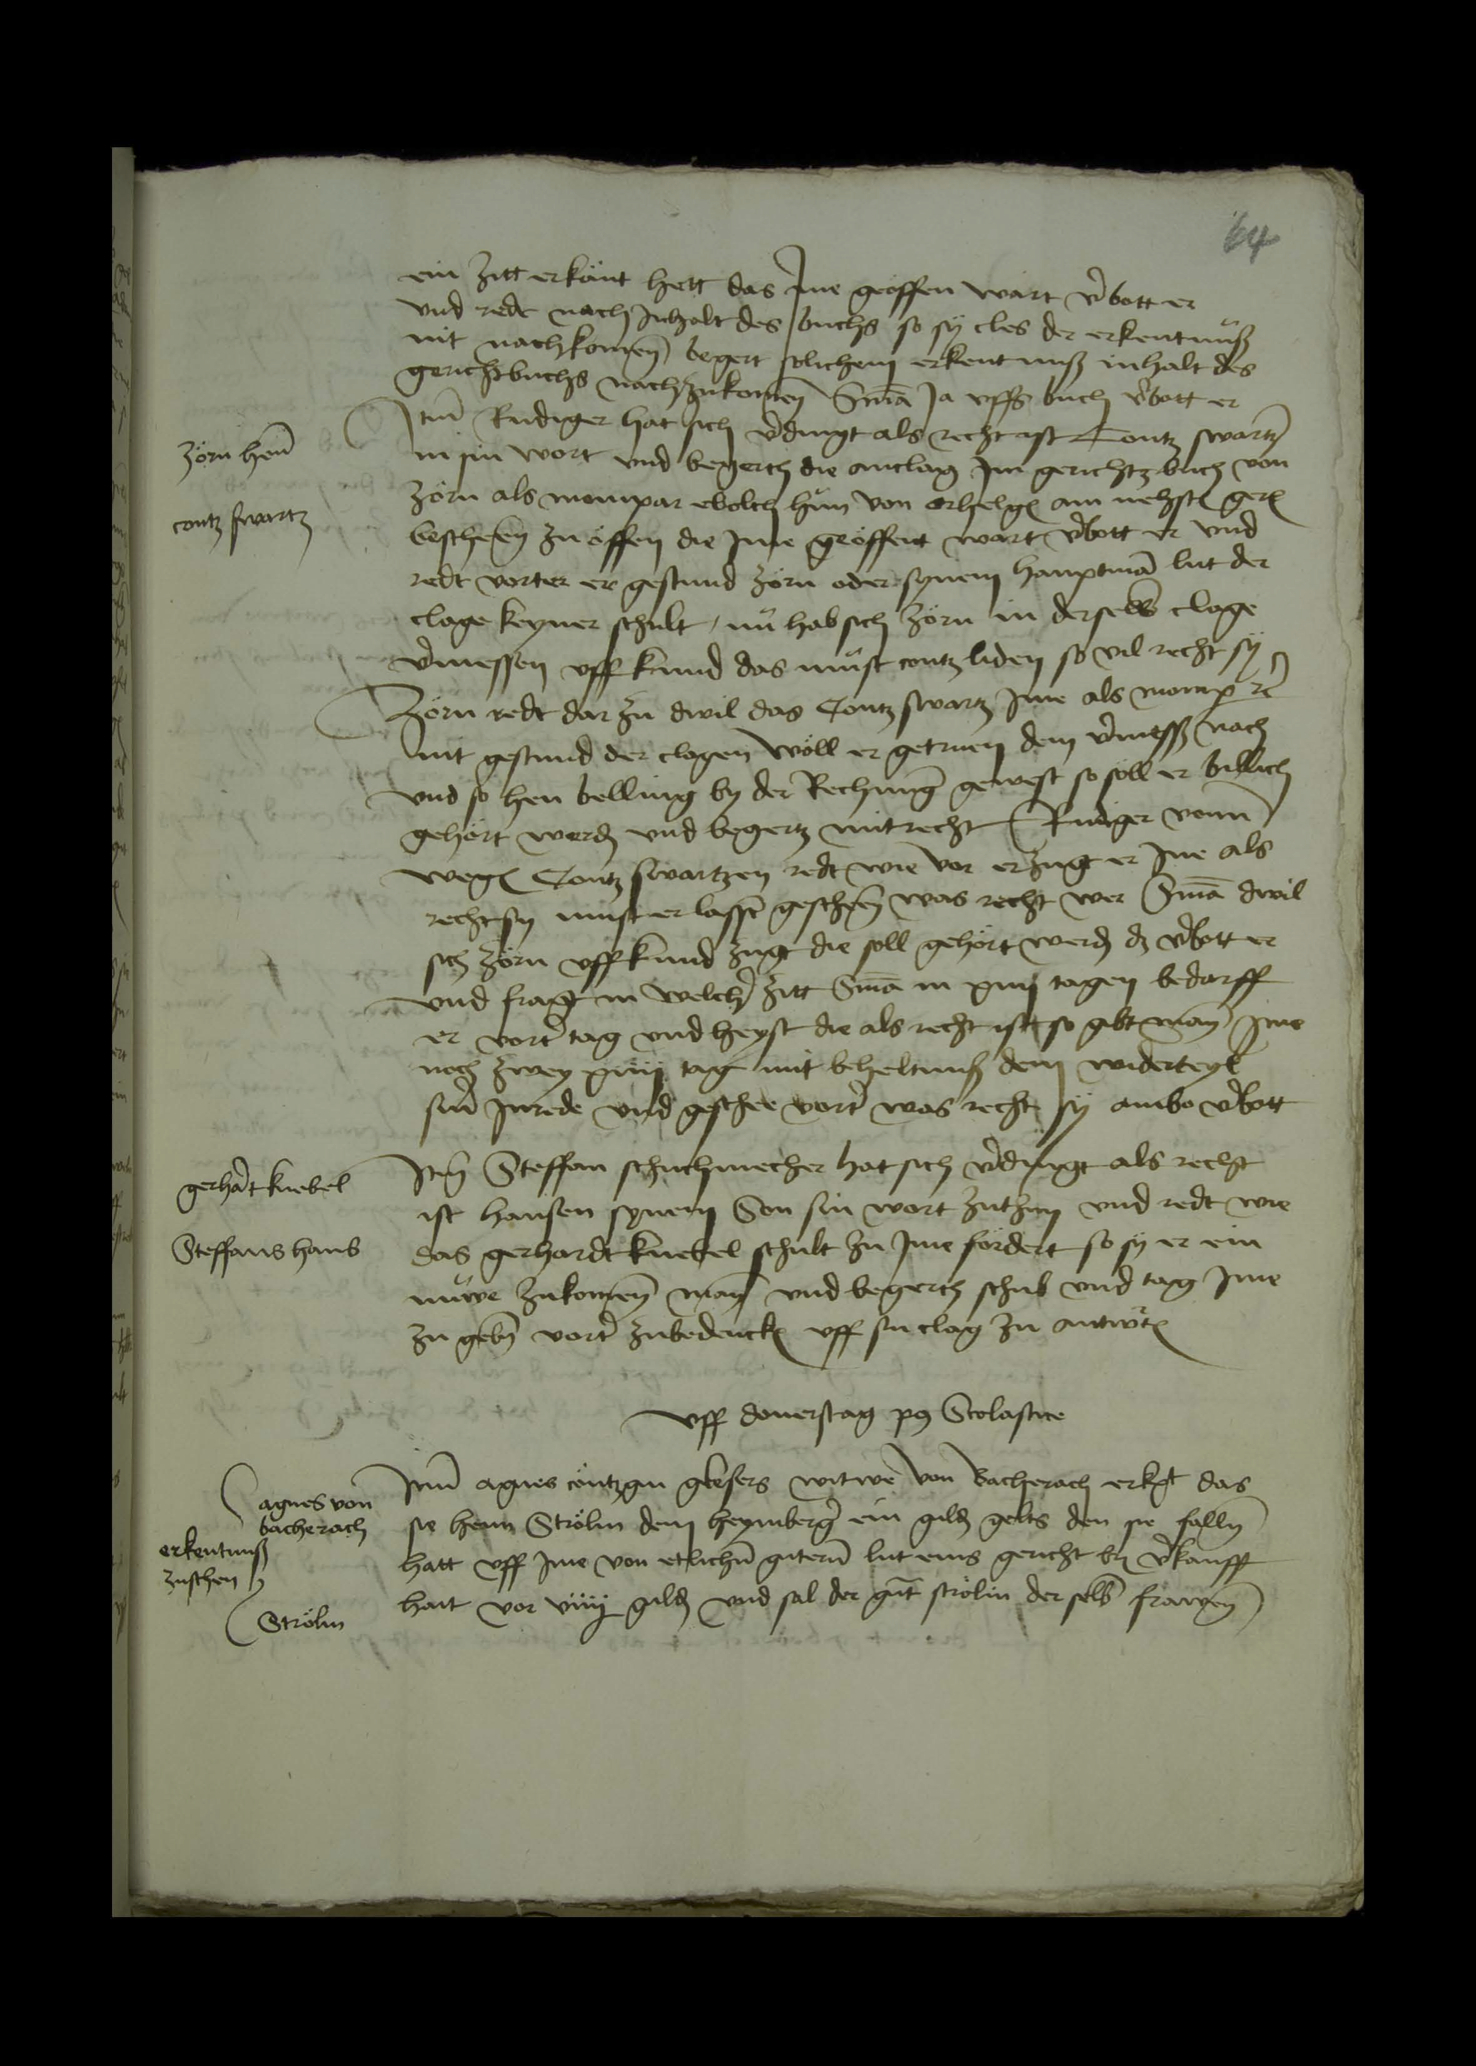 64
ein zitt erkant hett das Ime geoffen wart v̓bott er
vnd redt nach Inhalt des buchs so sÿ cles der erkentnuß
nit nachkomen̄ begert solichem erkentnuß inhalt des
gerichtbuchs nachzukomen Sma̅ Ja vffs buch v̓bott er
zorn hen̄
contz swartz
Itm̄ Rudiger hat sich v̓dingt als recht ist Contz swartz
in sin wort vnd begertz die anclag Im gerichtz buch von
zorn als mompar am nehst gerͤ
bescheen̄ zu offen die Ime geoffent wart v̓bott er vnd
redt vorter er gestund zorn oder synem hauptma̅ lut der
clage keyner schult / nu hab sich zorn in derselb̄ clage
v̓messen vff kund das must contz liden so vil recht sÿ
Zorn redt dar zu dwil das Contz swartz Ime als momp̄
nit gestund der clagen woll er getruen dem v̓meß nach
vnd so hen belling by der Rechnung gewest so soll er billich
gehört werd vnd begertz mit recht Rudiger vonn
wegͤ Contz swartzen redt wie vor erzugt er Ine als
recht sy must er lassͤ gescheen̄ was recht wer Sma̅ dwil
sich zorn vff kund zugt die soll gehört werd dz v̓bott er
vnd fragt in welch̓ zitt Sma̅ in xiiij tagen bedarff
er vort̓ tag vnd heyst die als recht ist so gibt man Ime
noch zwey xiiij tag mit beheltnuß dem widerteyl
sin̄ Inrede vnd geschee vort̓ was recht sÿ ambo v̓bott
gerhart knebel
Steffans hans
Itm̄ Steffan schuchmecher hat sich v̓dingt als recht
ist hansen synem Son sin wort zuthun vnd redt wie
das gerhardt knebel schult zu Ime fordert so sy er ein
nuwe zukomen̄ man vnd begertz schub vnd tag Ime
zu geb̄n vort̓ zubedenckͤ vff sin clag zu antw̓tͤ
vff donerstag p9 Scolastice
agnes von
bacherach
erkentnuß
zuschen
Strölin
Itm̄ agnes contzgin glesers witwe von Bacherach erk̄t das
sie henn Strölin dem heymberg̓ ein guld gelts den sie fallen̄
hatt vff Ime von etlichn̄ gutern̄ lut eins gericht br v̓kaufft
hait vor viiij guld vnd sal der gn̄t strölin der selb̄ frawen̄